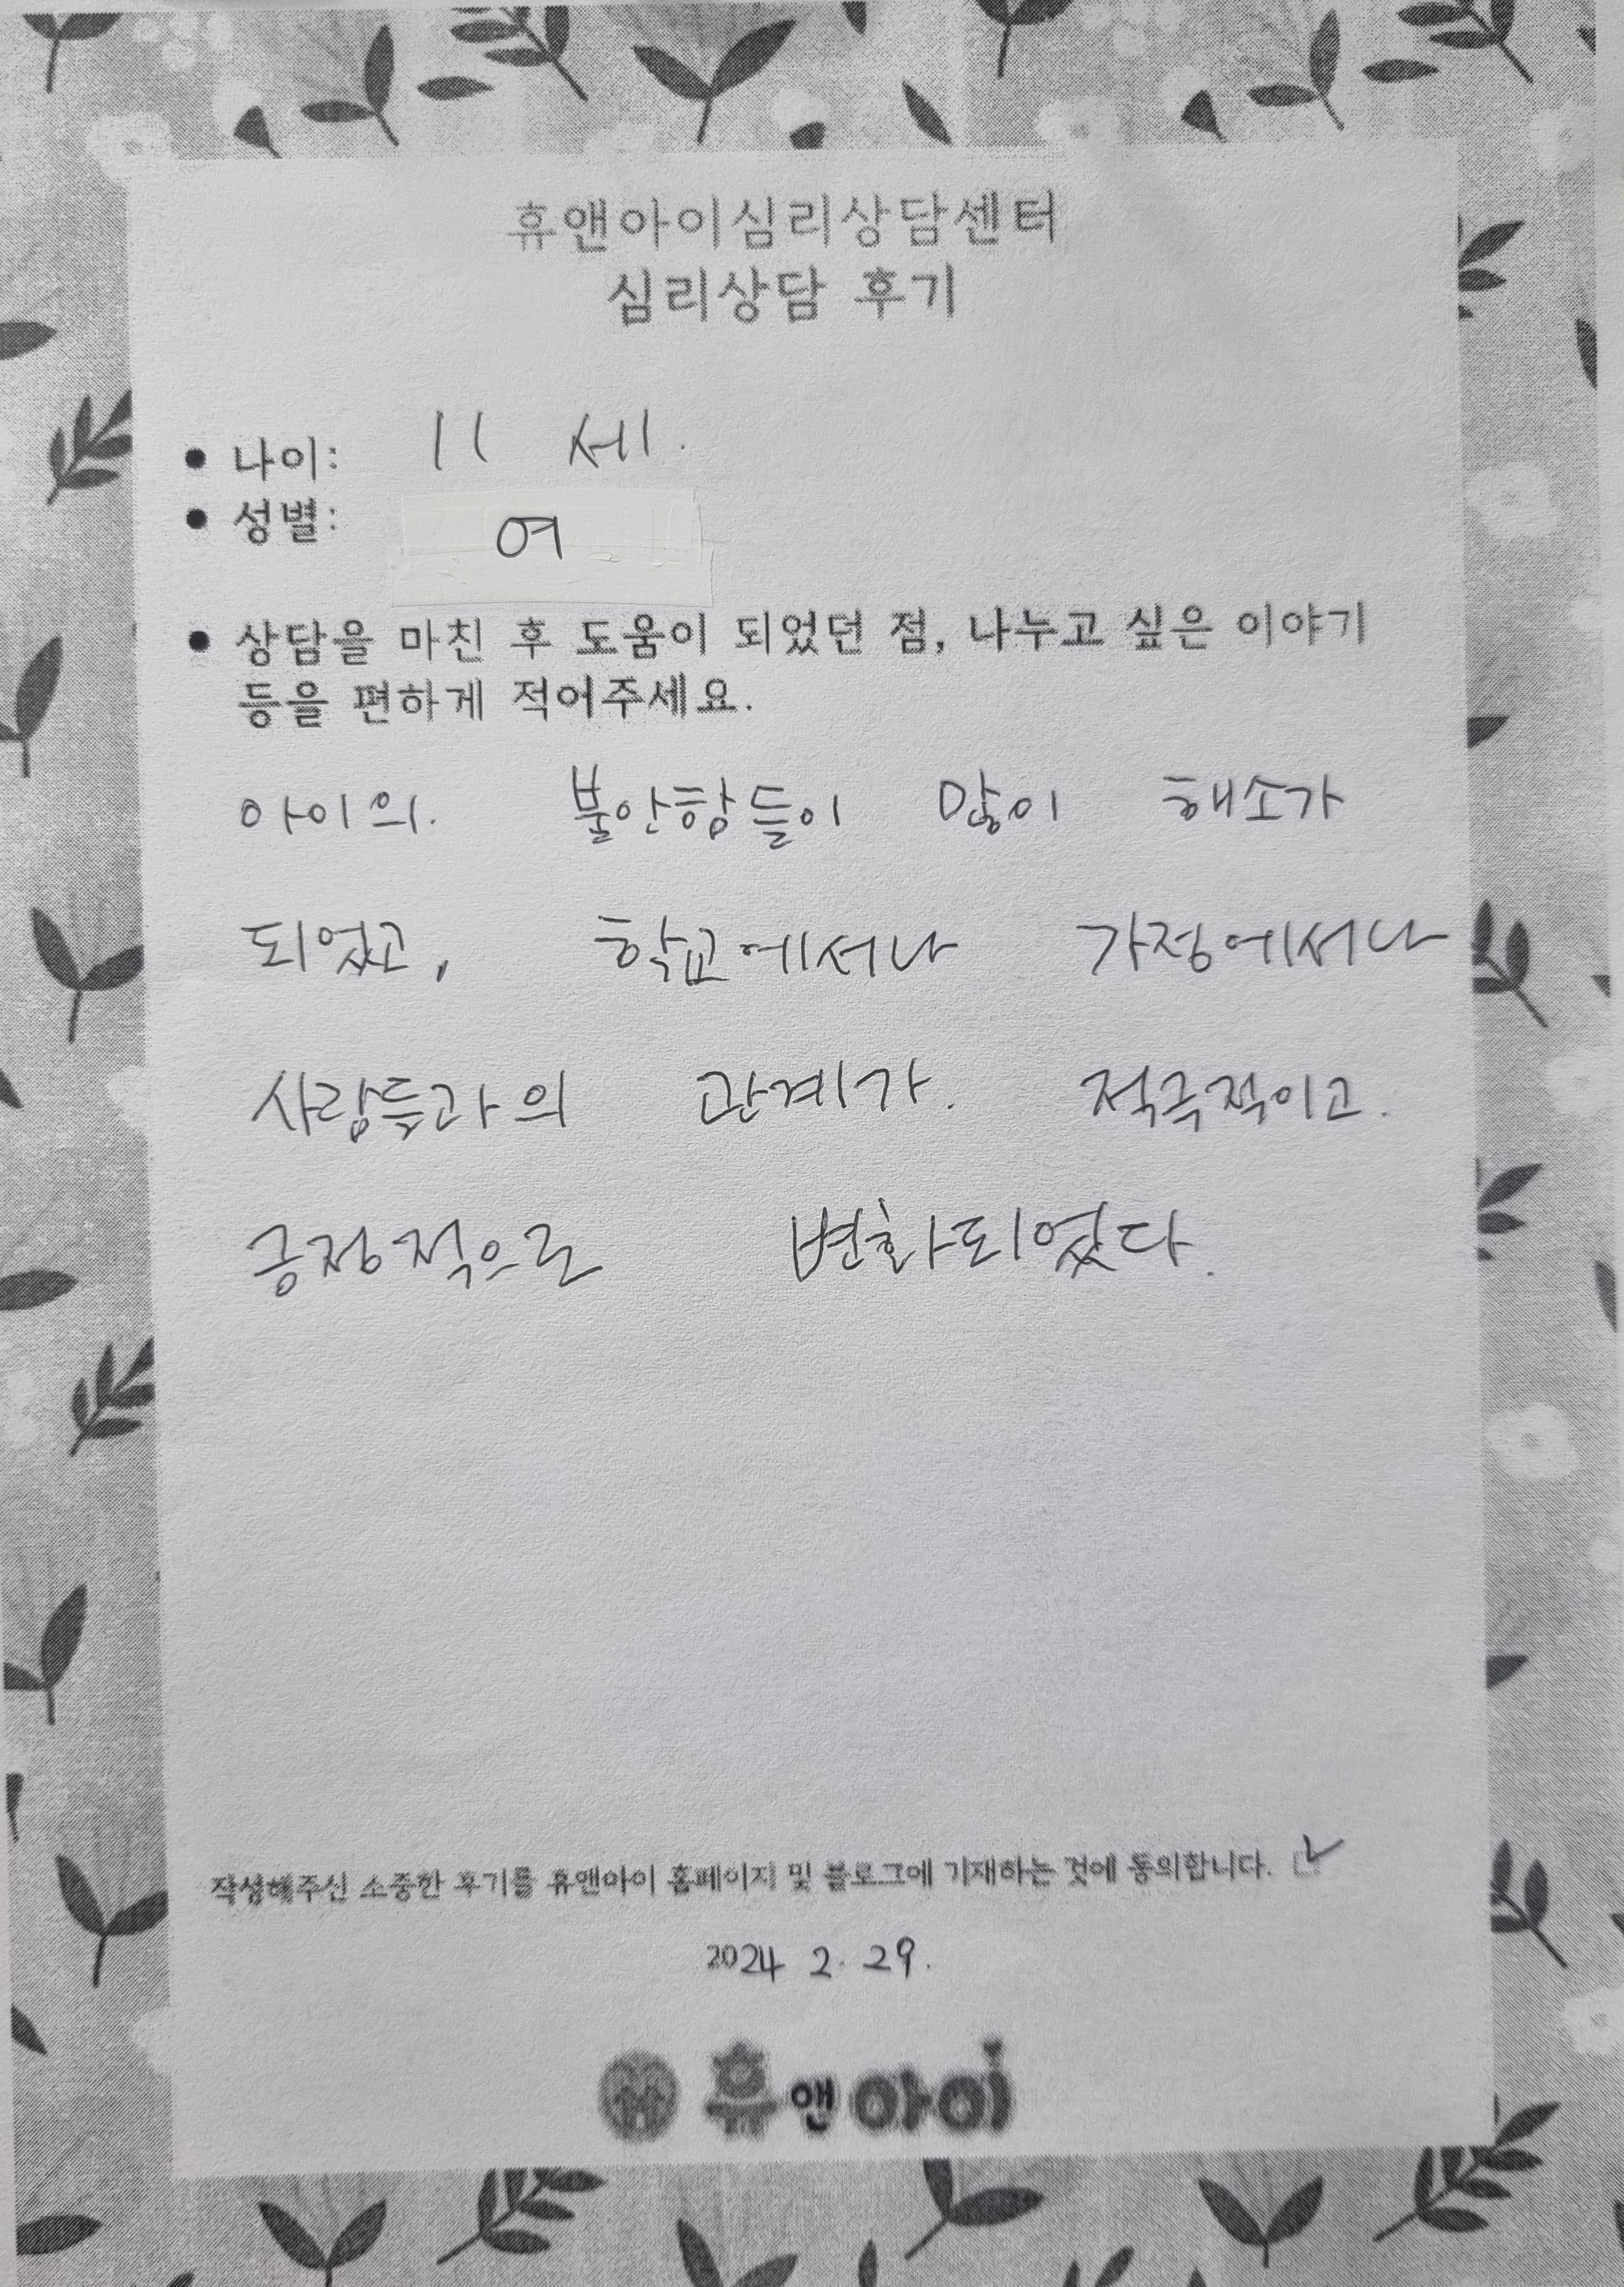 휴앤아이심리상담센터
심리상담 후기
• 나이: 11 세.
• 성별: 여
• 상담을 마친 후 도움이 되었던 점, 나누고 싶은 이야기
등을 편하게 적어주세요.
아이의. 불안함들이 많이 해소가
되었고, 학교에서나 가정에서나
사람들과의 관계가. 적극적이고.
긍정적으로 변화되었다.
작성해주신 소중한 후기를 휴앤아이 홈페이지 및 블로그에 기재하는 것에 동의합니다. ☑
2024 2. 29.
휴앤아이